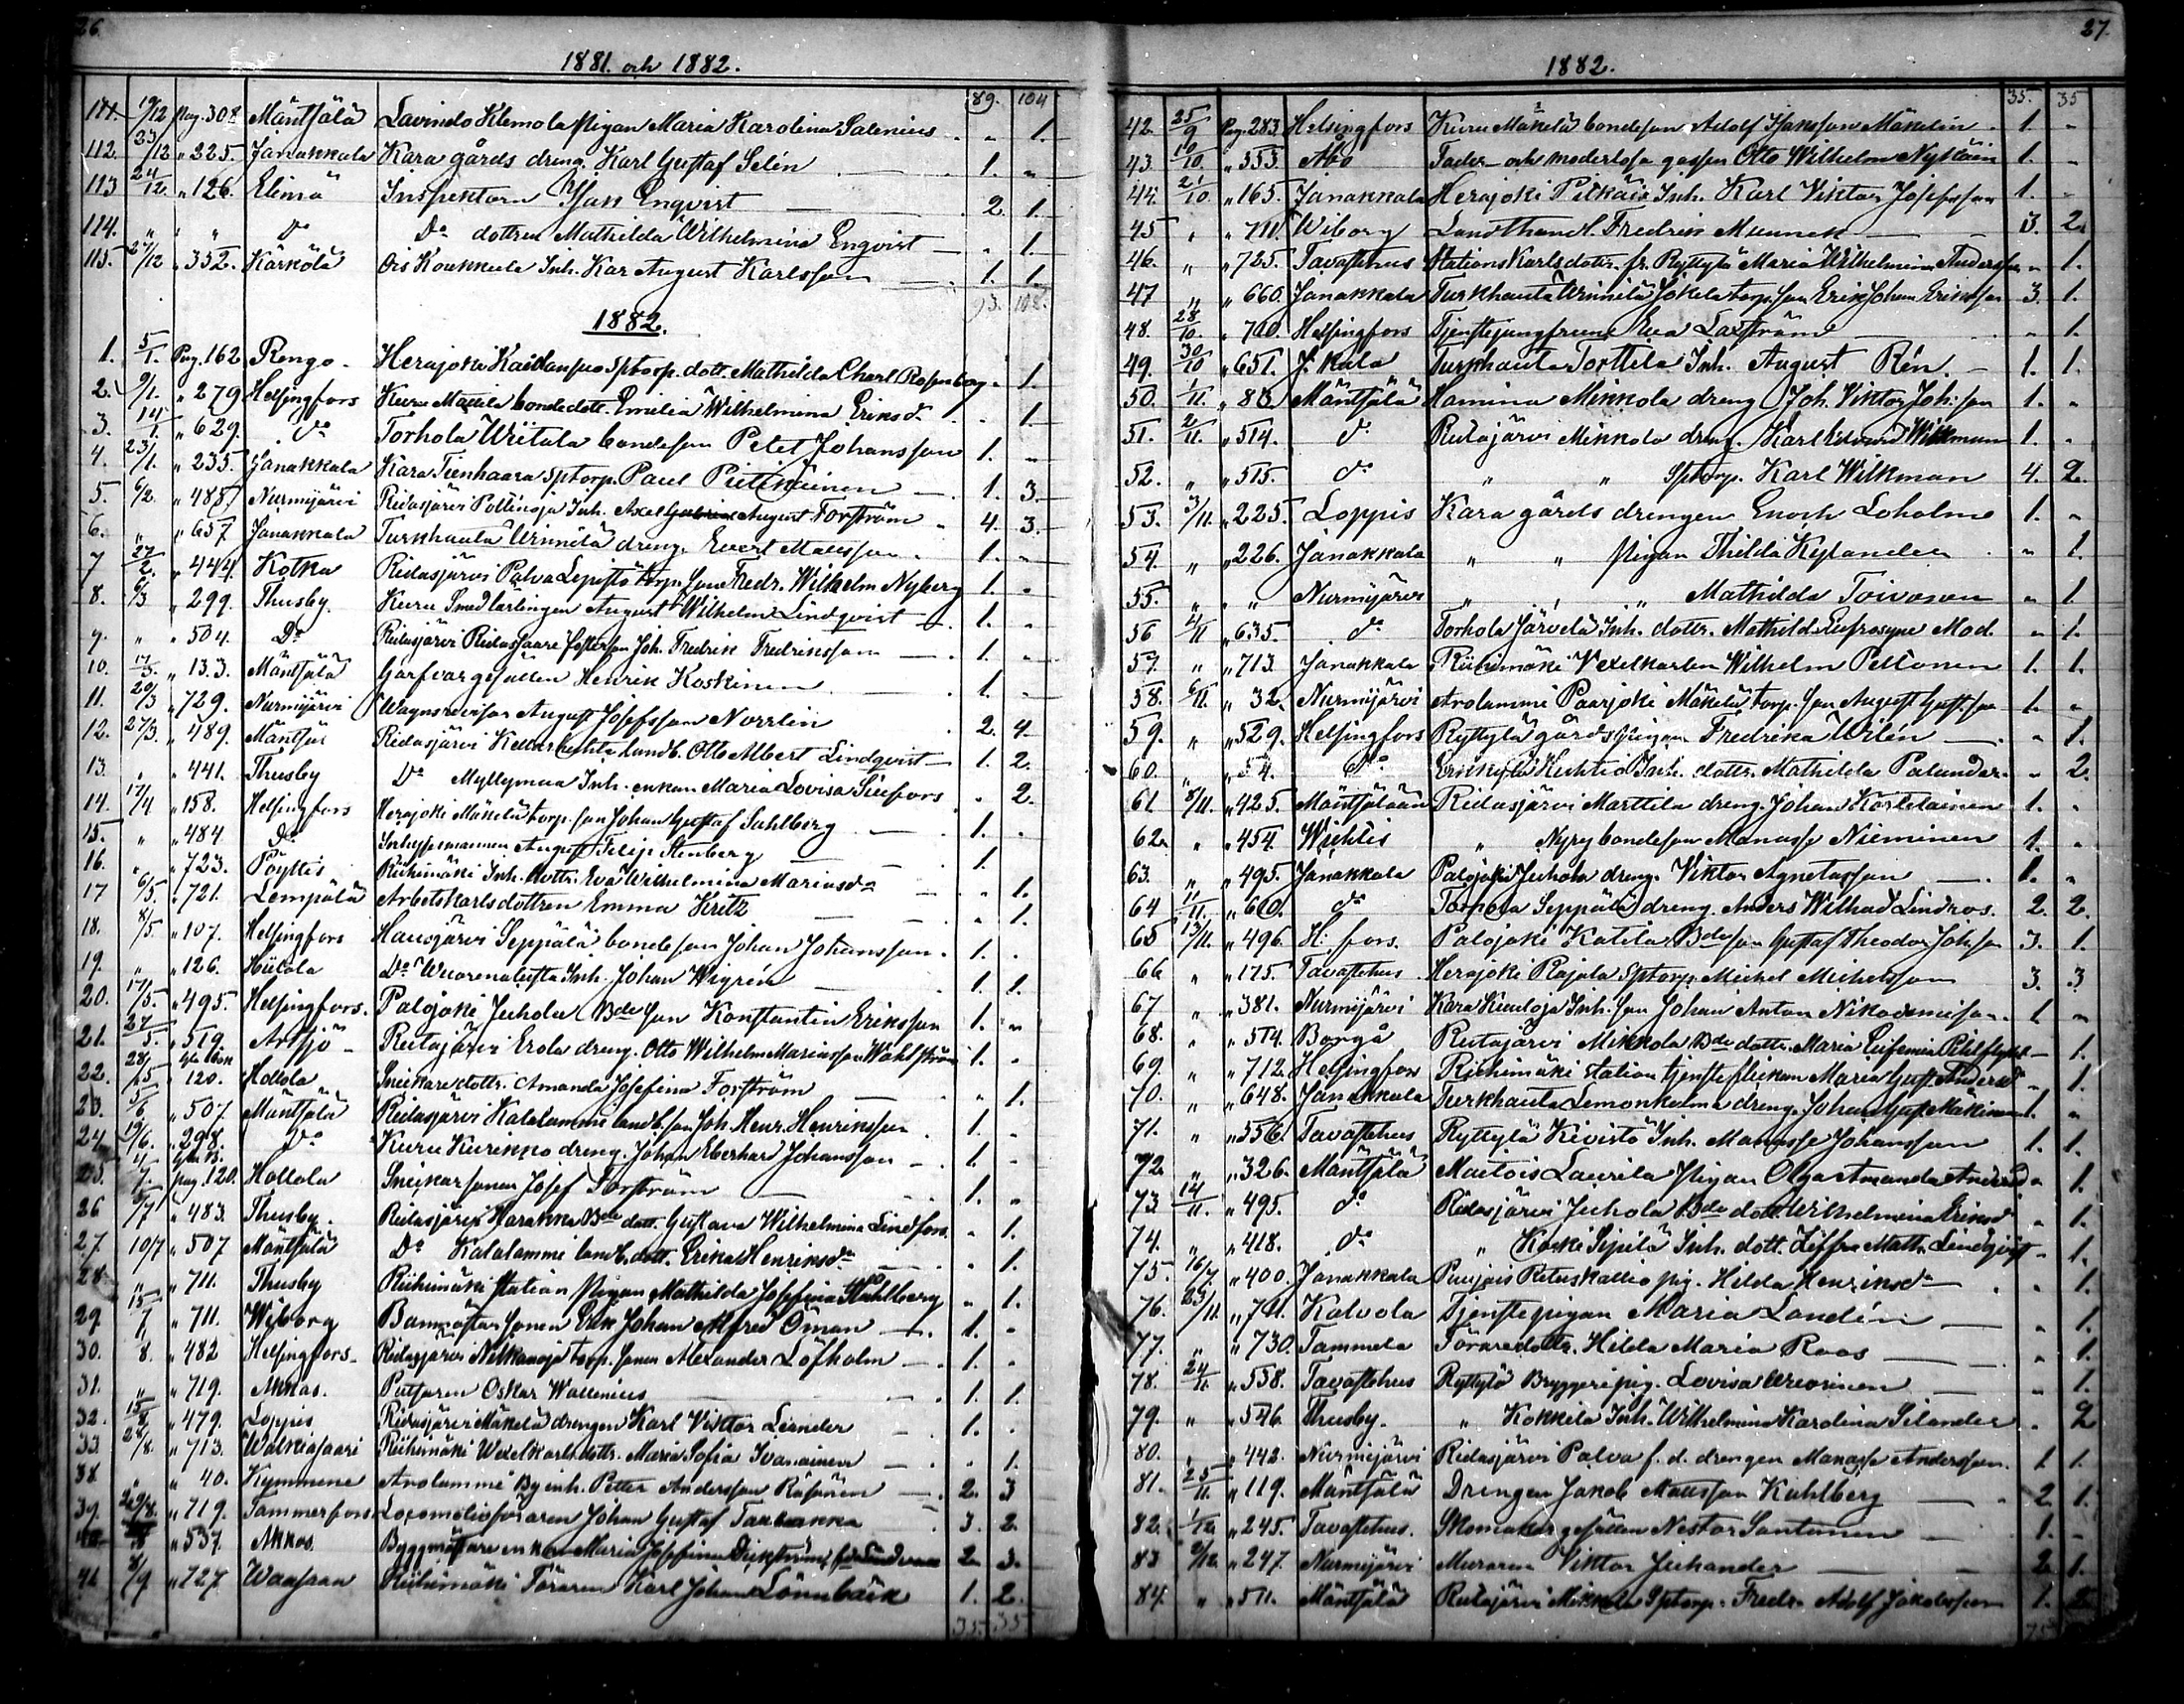 26
1881. och 1882.
89. 104
111. 19/12 Pag. 308 Mäntsälä Lavinto Klemola pigan Maria Karolina Salenius " 1.
112. 23/12 " 225. Janakkala Kara gårds dreng. Karl Gustaf Selin 1. "
113 24/12. " 126. Elimä Inspektorn Isak Enqvist 2. 1.
114. " " " Do Do dottren Mathilda Wilhelmina Enqvist " 1.
115. 27/12 " 352. Kärkölä Ois Koukkula Inh. Karl August Karlsson 1. 1.
93. 108.
1882.
1. 5/1. Pag. 162 Rengo Herajoki Kaidansuo Sptorp. dott. Mathilda Charl Rosenberg " 1.
2. 9/1. " 279 Helsingfors Kuru Mäkelä bondedott. Emilia Wilhelmina Eriksdr " 1.
3. 14/1. " 629. Do Torhola Wiitala bondeson Petet Johansson 1. "
4. 23/1. " 235. Janakkala Kara Tienhaara Sptorp. Paul Pietikäinen 1. 3.
5. 6/2. " 488 Nurmijärvi Ridasjärvi Pollinoja Inh. Axel August Forström 4. 3.
6. " " 657 Janakkala Turkhauta Uimila dreng. Evert Mattsson 1. "
7 27/2. " 444. Kotka Ridasjärvi Palva Lepistö torp. son Fredr. Wilhelm Nyberg 1. "
8. 6/3 " 299. Thusby. Kuru Smedlärlingen August Wilhelm Lindqvist 1. "
9. " " 504. Do Ridasjärvi Ridassaare fosterson Joh. Fredrik Fredriksson 1. "
10. 17/3. " 133. Mäntsälä Garfvargesällen Henrik Koskinen 1. "
11. 20/3 " 729. Nurmijärvi Wagnsrevisor August Josefsson Norrlin 2. 4
12. 27/3. " 489. Mäntsäl Ridasjärvi landb. Otto Albert Lindqvist 1. 2.
13. " " 441. Thusby Do Myllymaa Inh. enkan Maria Lovisa Siefors " 2.
14. 17/4 " 158. Helsingfors Herajoki Mäkelä torp. son Johan Gustaf Sahlberg 1. "
15. " " 484 Do August Filip Stenberg 1.
16. " " 723. Pöyttis Riihimäki Inh. dottr. Eva Wilhelmina Mariasdr " 1.
17 6/5. " 721. Lempälä Arbetskarlsdottren Emma Kritz " 1.
18. 8/5 " 107. Helsingfors Hausjärvi Seppälä bondeson Johan Johansson 1. "
19. " " 126. Hiitola Do Inh. Johan Wigrén 1. 1.
20. 17/5. " 495. Helsingfors. Palojoki Juhola Bde son Konstantin Eriksson 1. "
21. 27/5. " 519. Artsjö Rutajärvi Erola dreng. Otto Wilhelm Mariasson Wahlström 1. "
22. 28/5 " 120. Hollola Snickaredottr. Amanda Josefina Forström " 1.
23. 5/6 " 507. Mäntsälä Ridasjärvi Kalalammi landb. son Joh. Henr. Henriksson 1. "
24 19/6. " 298. Do Kuru Kurikko dreng. Johan Eberhard Johansson 1. "
25. 7. pag. 120. Hollola Snickarsonen Josef Forström 1. "
26 6/7 " 483. Thusby. Ridasjärvi Harakka Bde dott. Gustava Wilhelmina Lindfors. " 1.
27. 10/7 " 507 Mäntsälä Do Kalalammi landb. dott. Erika Henriksdr " 1.
28 " " 711. Thusby Riihimäki station pigan Mathilda Josefina Stahlberg " 1.
29. 15/7. " 711. Wiborg Banmästarsonen Erik Johan Alfred Öman 1. "
30. 8. " 482 Helsingfors Ridasjärvi Nelkanoja torp. sonen Alexander Löfholm 1. "
31. " " 719. Akkas. Putsaren Oskar Wallenius 1. 1.
32. 15/8. " 479. Loppis Ridasjärvi Mäkelä drengen Karl Viktor Leander 1. "
33. 28/8. " 713. Walkiasaari Riihimäki Wexelkarls dottr. Maria Sofia Ivanainen " 1.
38. " " 40. Kymmene Arolammi By inh. Petter Andersson Räsänen 2. 3
39. 29/8. " 719. Tammerfors Locomotivföraren Johan Gustaf 3. 2.
" 537. Akkas. Byggmästare enkan Maria Josefina 2. 3.
41 8/9 " 727 Waasan Riihimäki Föraren Karl Johan Lönnbäck 1. 2.
35. 35
27.
1882.
35. 35
42. 25/9 Pag. 283. Helsingfors Kuru Mäkelä bondeson Adolf Isaksson Mäkelin 1. "
43. 10/10. " 553. Åbo Fader- och moderlösa gossen Otto Wilhelm 1. "
44. 21/10. " 165. Janakkala Herajoki Pitkäis Inh. Karl Viktor Josefsson 1. "
45 " " 711. Wiborg Landthandl. Fredrik Munnek 3. 2.
46. " " 725. Tavastehus Stationskarlsdottr. fr. Ryttylä Maria Wilhelmina Andersson " 1.
47 " " 660. Janakkala Turkhauta Uimila Jokela torp. son Erik Johan Eriksson 3. 1.
48. 28/10. " 710. Helsingfors Tjenstejungfrun Eva Laxström " 1.
49. 30/10 " 651. J. kala Turkhauta Torttila Inh. August Rén. 1. 1.
50. 1/11. " 83. Mäntsälä Hamina Mikkola dreng Joh. Viktor Joh:son 1. "
51. 2/11. " 514. do Rutajärvi Mikkola dreng. Karl Edvard Wikman 1. "
52. " " 515. do " " Sptorp. Karl Wilkman 4. 2.
53. 3/11. " 225. Loppis Kara gårds drengen Enoch Loholm 1. "
54. " " 226. Janakkala " " pigan Thilda Kylander " 1.
55. " " " Nurmijärvi " " " Mathilda Toivonen " 1.
56 4/11 " 635. do Torhola Järvelä Inh. dottr. Mathilda Eufrosyne Mod. " 1.
57. " " 713. Janakkala Riihimäki Vexelkarlen Wilhelm Peltonen 1. 1.
58. 6/11. " 32. Nurmijärvi Arolammi Paarjoki Mäkelä torp. son August Gust.son 1. "
59. " " 529. Helsingfors Ryttylä gårdspigan Fredrika Wilén " 1.
60. " " 54. Do Erkkylä Huhtio Inh. dottr. Mathilda Palander " 2.
61 8/11. " 425. Mäntsälään Ridasjärvi Marttila dreng. Johan Korkelainen 1. "
62. " " 454. Wichtis " Nyry bondeson Manasse Nieminen 1. "
63. " " 495. Janakkala Palojoki Juhola dreng. Viktor Agnetasson 1. "
64 11/11. " 610. do Torhola Seppälä dreng. Anders Wilhad Lindros. 2. 2.
65 13/11. " 496. H:fors. Palojoki Katila Bde son Gustaf Theodor Johsson 3. 1.
66 " " 175. Tavastehus Herajoki Rajala Sptorp. Mickel Michelsson 3. 3
67 " " 381. Nurmijärvi Kara Kuuloja Inh. son Johan Anton Nikodemisson 1. "
68. " " 514. Borgå Rutajärvi Mikkola Bde dottr. Maria Eufemia " 1.
69. " " 712. Helsingfors Riihimäki station tjensteflickan Maria Gust. Andersdr " 1.
70. " " 648. Janakkala Turkhauta Lemonkulma dreng. Johan Gust Mäkinen 1. "
71. " " 556. Tavastehus Ryttylä Kivistö Inh. Manasse Johansson 1. 1.
72. " " 326. Mäntsälä Maitois Laurila pigan Olga Amanda Andersdr " 1.
73. 14/11. " 495. do Ridasjärvi Juhola Bde dott. Wilhelmina Eriksdr " 1.
74. " " 418. do " Koski Sipilä Inh. dott. Math. Lindqvist " 1.
75. 16/7. " 400. Janakkala Puujois Retuskallio pig. Hilda Henriksdr " 1.
76. 23/11. " 711. Kalvola Tjenstepigan Maria Landén " 1.
77. " " 730. Tammela Föraredottr. Hilda Maria Roos " 1.
78. 24/11. " 558. Tavastehus Ryttylä Bryggeripig. Lovisa Wuorinen " 1.
79. " " 546. Thusby. " Kokkila Inh. Wilhelmina Karolina Selander " 2
80. " " 442. Nurmijärvi Ridasjärvi Palva f. d. drengen Manasse Andersson. 1. 1.
81. 25/11. " 119. Mäntsälä Drengen Jakob Mattsson Kuhlberg 2. 1.
82. 1/12. " 245. Tavastehus. Skomakargesällen Nestor Santanen 1. "
83 2/12. " 247. Nurmijärvi Muraren Viktor Juhander 2. 1.
84. " " 511. Mäntsälä Rutajärvi Mikkola Sptorp. Fredr. Adolf Jakobsson 1. 2.
75